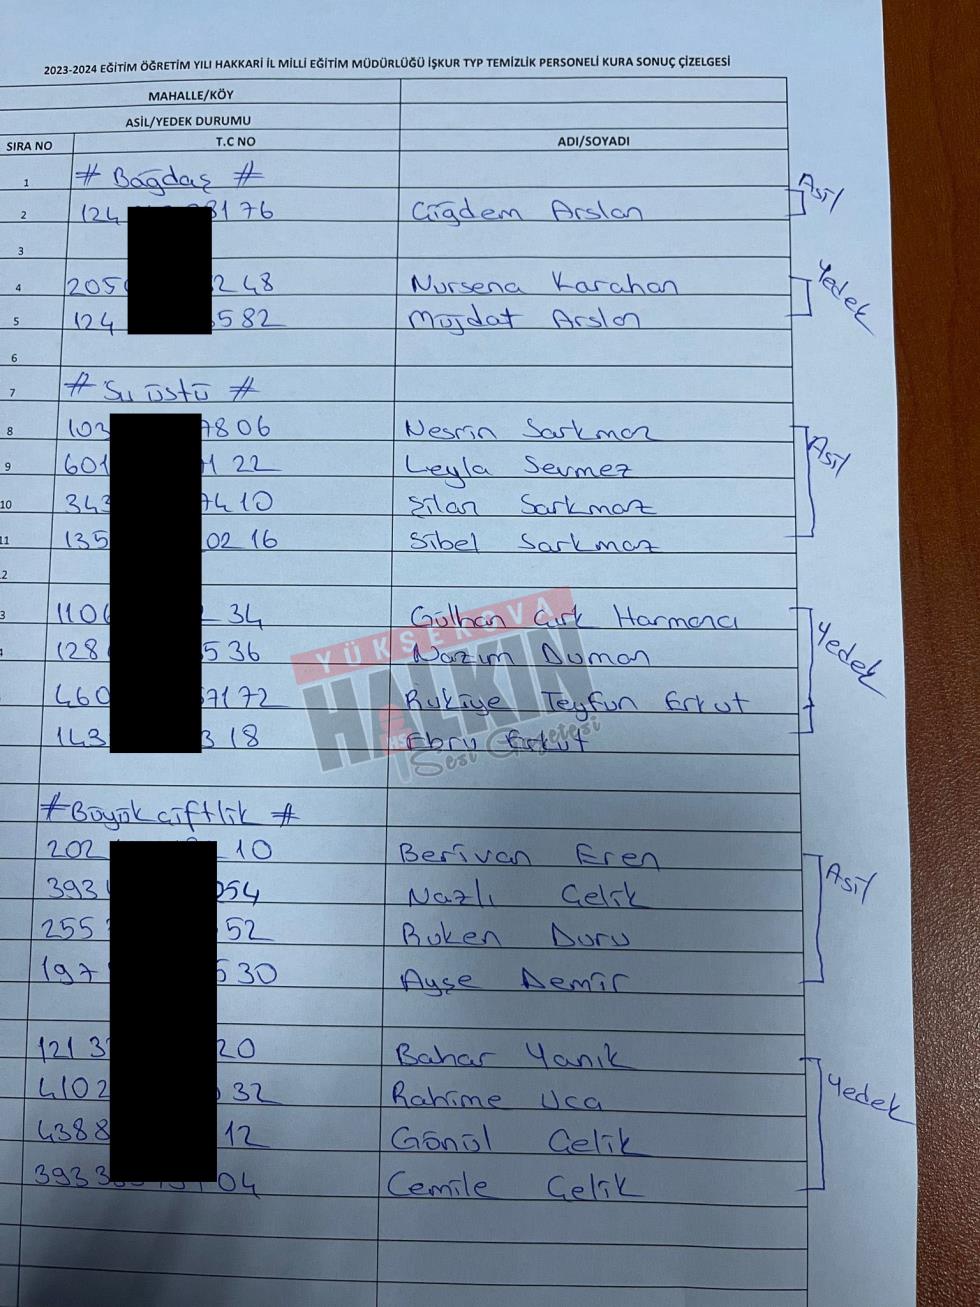 2023-2024 EĞİTİM ÖĞRETİM YILI HAKKARİ İL MİLLİ EĞİTİM MÜDÜRLÜĞÜ İŞKUR TYP TEMİZLİK PERSONELİ KURA SONUÇ ÇİZELGESİ
MAHALLE/KÖY
ASİL/YEDEK DURUMU
SIRA NO T.C NO ADI/SOYADI
1 # Bağdaş #
2 124 8176 Çiğdem Arslan Asil
3
4 205 248 Nursena Karahan Yedek
5 124 582 Müjdat Arslan
6
7 # Su üstü #
8 103 7806 Nesrin Sarkmaz Asil
9 601 122 Leyla Sevmez
10 343 7410 Şilan Sarkmaz
11 135 0216 Sibel Sarkmaz
2
3 110 34 Gülhan Çırk Harmancı Yedek
4 128 536 Nazım Duman
460 7172 Rukiye Teyfun Erkut
143 318 Ebru Erkut
YÜKSEKOVA
HALKIN
Sesi Gazetesi
# Büyük çiftlik #
202 10 Berivan Eren Asil
393 054 Nazlı Çelik
255 52 Ruken Duru
197 530 Ayşe Demir
1213 20 Bahar Yanık Yedek
4102 32 Rahime Uca
4388 12 Gönül Çelik
393 3 04 Cemile Çelik